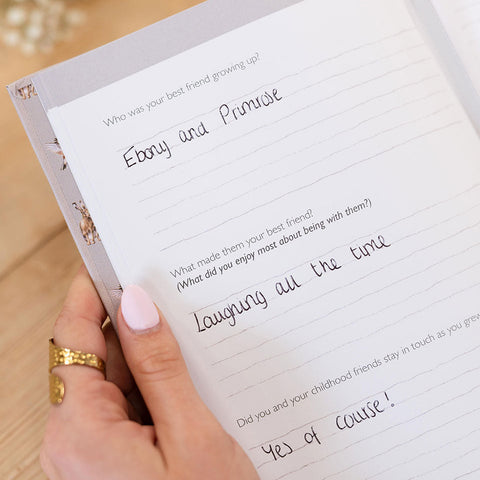 Who was your best friend growing up?
Ebony and Primrose
What made them your best friend?
(What did you enjoy most about being with them?)
Laughing all the time
Did you and your childhood friends stay in touch as you grew
Yes of course!